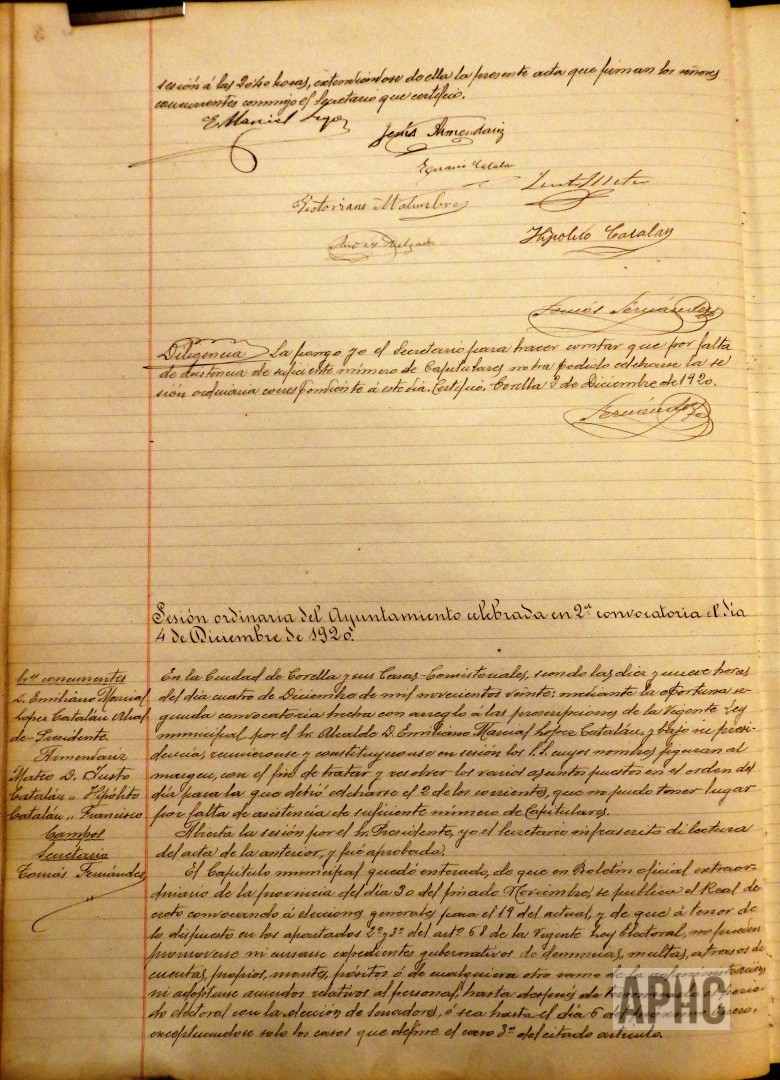 sesión á las 20'40 horas, extendiéndose de ella la presente acta que firman los señores
concurrentes conmigo el Secretario que certifico.
E. Marcial López
Jesús Armendáriz
Catalán
Justo Mateo
Victoriano Malumbres
Delgado
Hipólito Catalán
Tomás Fernández
Diligencia La pongo yo el Secretario para hacer constar que por falta
de asistencia de suficiente número de Capitulares no ha podido celebrarse la se
sión ordinaria correspondiente á este día. Certifico. Corella 2 de Diciembre de 1920.
Fernández
Sesión ordinaria del Ayuntamiento celebrada en 2ª convocatoria el día
4 de Diciembre de 1920.
Sres concurrentes
D. Emiliano Marcial
López Catalán Alcal
de-Presidente
Armendáriz
Mateo D. Justo
Catalán " Hipólito
Catalán " Francisco
Campos
Secretario
Tomás Fernández
En la Ciudad de Corella y sus Casas-Consistoriales, siendo las diez y nueve horas
del día cuatro de Diciembre de mil novecientos veinte: mediante la oportuna se-
gunda convocatoria hecha con arreglo á las prescripciones de la Vigente Ley
municipal por el Sr. Alcalde D. Emiliano Marcial López Catalán, y bajo su presi-
dencia, reuniéronse y constituyéronse en sesión los S.S. cuyos nombres figuran al
margen, con el fin de tratar y resolver los varios asuntos puestos en el orden del
día para la que debió celebrarse el 2 de los corrientes, que no pudo tener lugar
por falta de asistencia de suficiente número de Capitulares.
Abierta la sesión por el Sr. Presidente, yo el Secretario infrascrito dí lectura
del acta de la anterior, y fué aprobada.
El Capítulo municipal quedó enterado, de que en Boletín oficial extraor-
dinario de la provincia del día 30 del pasado Noviembre, se publica el Real de
creto convocando á elecciones generales para el 19 del actual, y de que á tenor de
lo dispuesto en los apartados 2º y 3º del artº 68 de la Vigente Ley Electoral, no pueden
promoverse ni cursarse expedientes gubernativos de denuncias, multas, atrasos de
cuentas, propios, montes, pósitos ó de cualquiera otro ramo de la administración,
ni adoptarse acuerdos relativos al personal, hasta después de terminado el perio-
do electoral con la elección de Senadores, ó sea hasta el día 6 de
exceptuándose solo los casos que define el caso 3º del citado artículo.
APHC